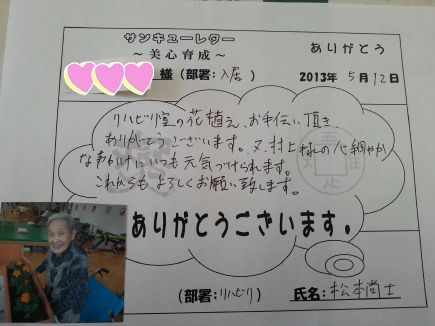 サンキューレター
～美心育成～
ありがとう
様(部署:入居)
2013年 5月12日
リハビリ室の花植え、お手伝い頂き
ありがとうございます。又、村上様の心細やか
な声かけにいつも元気づけられます。
これからもよろしくお願い致します。
ありがとうございます。
(部署:リハビリ)
氏名:松本尚士